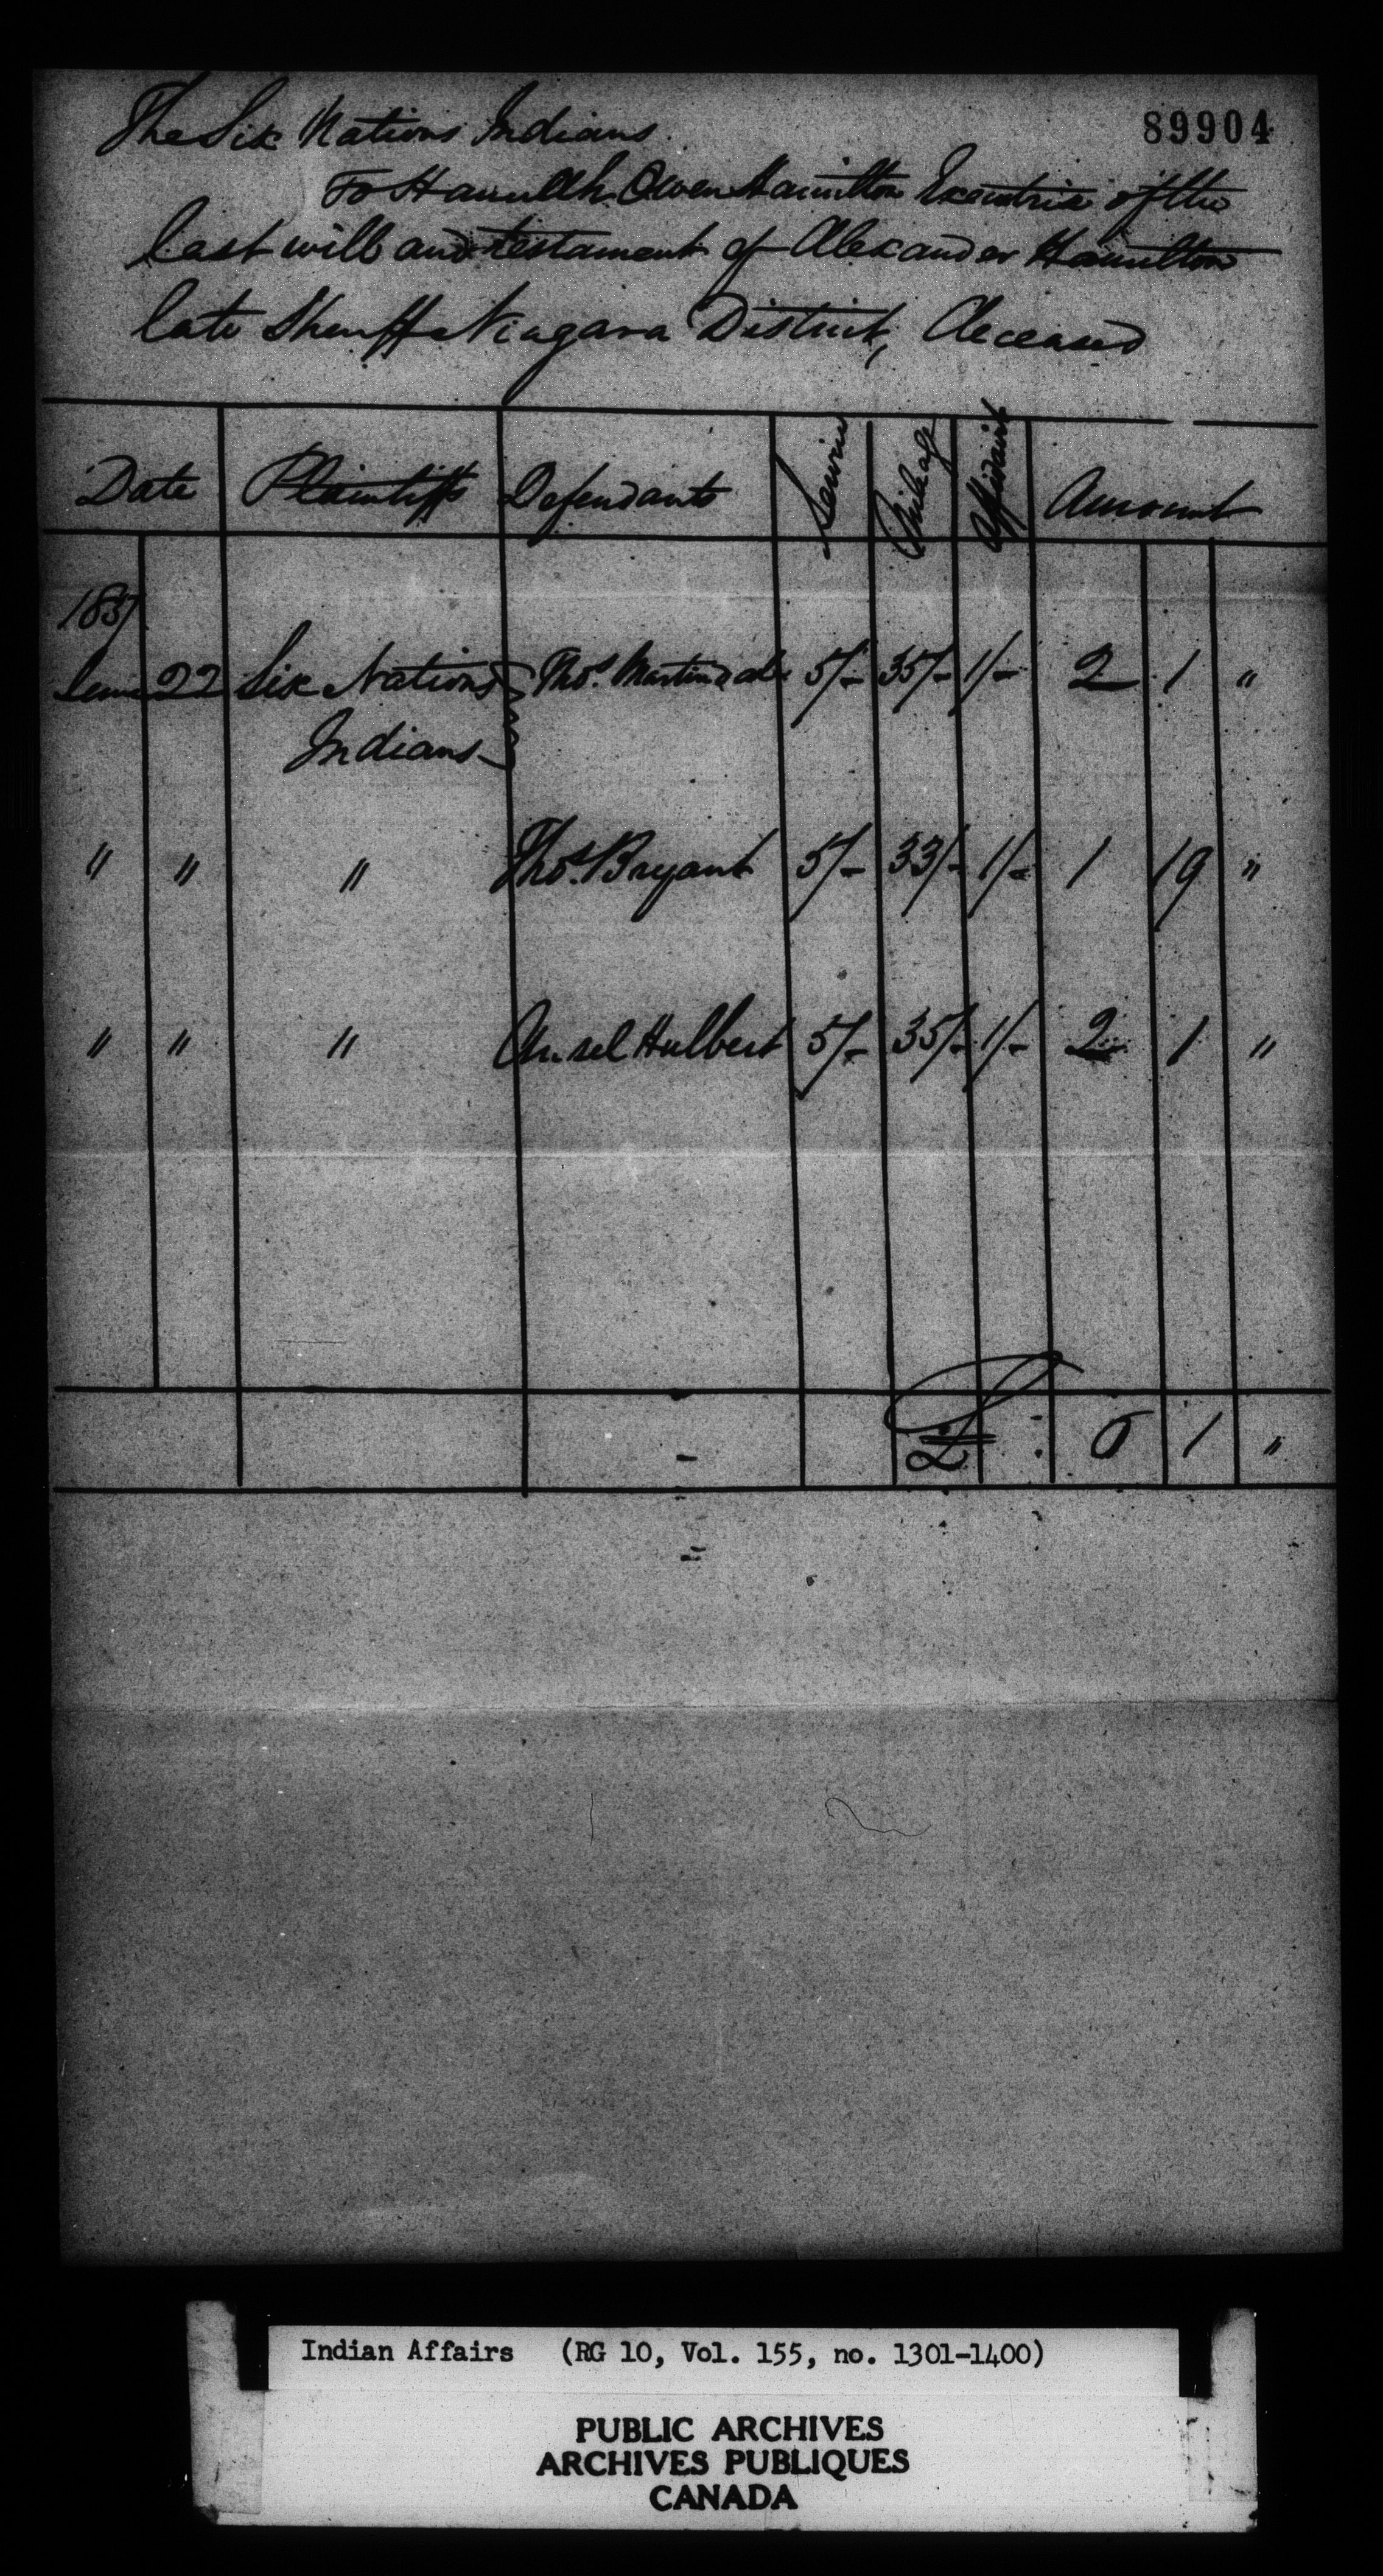 89904
The Six Nations Indians
To Hannah Owen Hamilton Executrix of the
last will and testament of Alexander Hamilton
late Sheriff Niagara District, deceased
Date Plaintiffs Defendants Service Mileage Affidavit Amount
1837
June 22 Six Nations Thos. Martindale 5/- 35/- 1/- 2 1 "
Indians
" " " Thos. Bryant 5/- 33/- 1/- 1 19 "
" " " Ansel Hulbert 5/- 35/- 1/- 2 1 "
£ : 6 1 "
Indian Affairs (RG 10, Vol. 155, no. 1301-1400)
PUBLIC ARCHIVES
ARCHIVES PUBLIQUES
CANADA